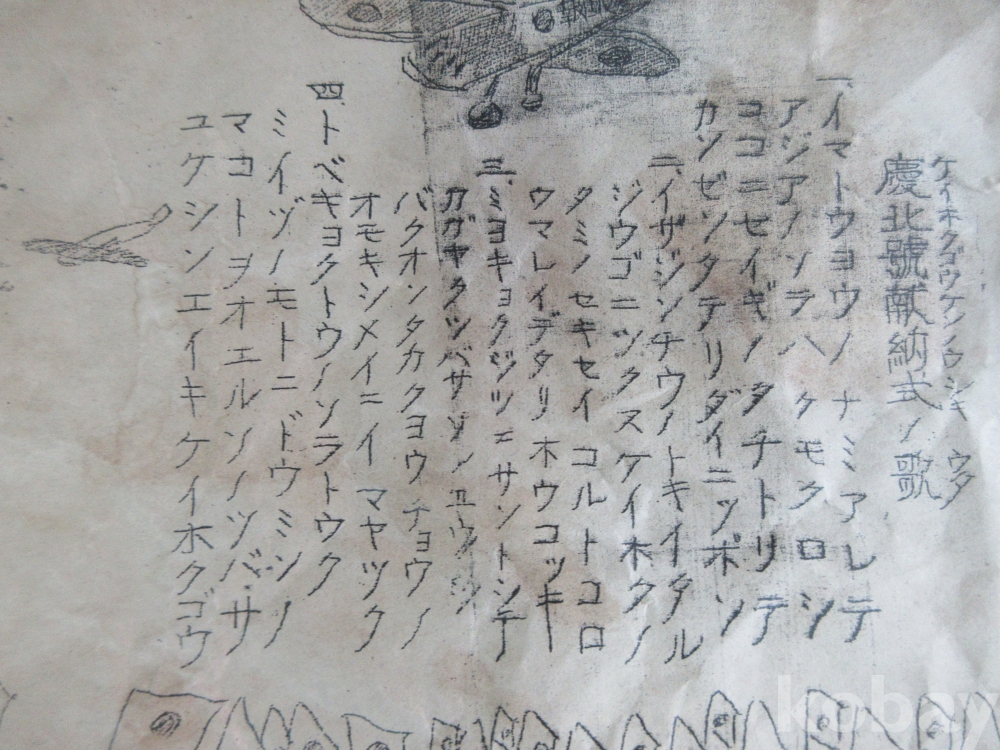 ケイホクゴウケンノウシキ ウタ
慶北號献納式ノ歌
一、イマトウヨウノ ナミアレテ
アジアノソラハ クモクロシ
ココニセイギノ タチトリテ
カンゼンタテリ ダイニッポン
二、イザジンチウノ トキイタル
ジウゴニツクス ケイホクノ
タミノセキセイ コルトコロ
ウマレイデタリ ホウコッキ
三、ミヨキョクジツニ サントシテ
カガヤクツバサソノユウシ
バクオンタカクヨウチョウノ
オモキシメイニ イマヤツク
四、トベキョクトウノ ソラトウク
ミイヅノモトニ ドウミンノ
マコトヲオエル ソノツバサ
ユケシンエイキ ケイホクゴウ
kobay